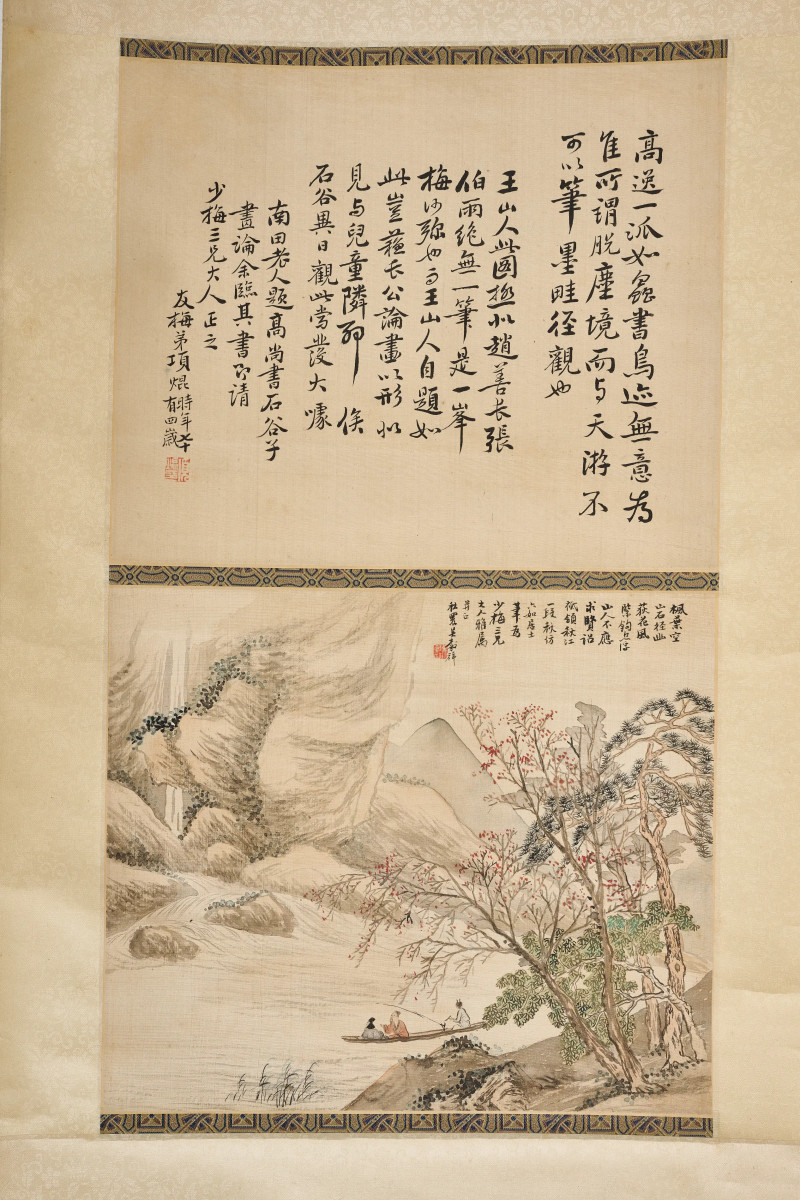 高逸一派如蟲書鳥迹無意為
佳所謂脱塵境而与天游不
可以筆墨畦径觀也
王山人此圖極似趙善长張
伯雨絶無一筆是一峯
梅沙弥也而王山人自題如
此豈蘓长公論畫以形似
見与兒童隣耶 俟
石谷異日觀此當發大噱
南田老人題高尚書石谷子
畫論余臨其書即請
少梅三兄大人正之
友梅弟項焜時年七十有四歲
楓葉空
山石径幽
荻花風
緊釣息深
山人不應
求賢詔
祗領秋江
一段秋仿
六如居士
筆為
少梅三兄
大人雅属
并正